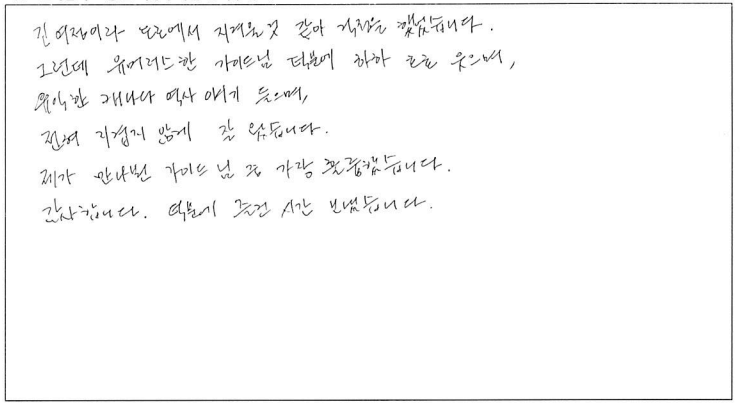 긴 여정이라 도로에서 지겨울것 같아 걱정을 했었습니다.
그런데 유머러스한 가이드님 덕분에 하하 호호 웃으며,
유익한 캐나다 역사 이야기 들으며,
전혀 지겹지 않게 잘 왔습니다.
제가 만나본 가이드님 중 가장 훌륭했습니다.
감사합니다. 덕분에 즐건 시간 보냈습니다.